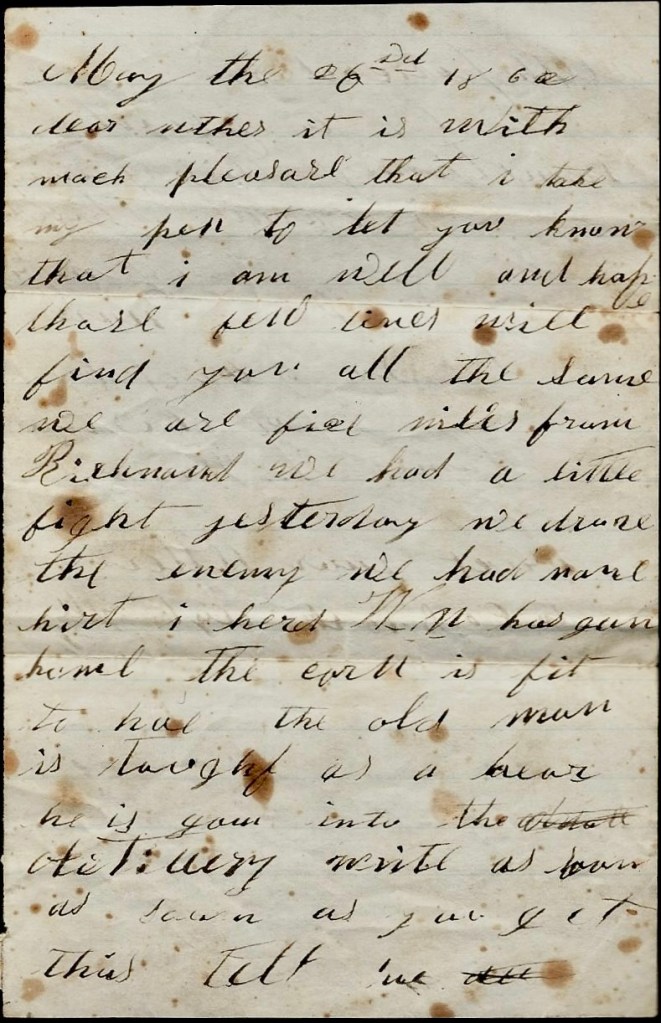 May the 26 Dd 1862
dear uther it is with
mach pleasarl that i take
my pen to let you know
that i am well and hap
tharl few lines will
find you all the same
we are five miles from
Richmand we had a little
fight yesterday we drove
the enemy we had nane
hirt i herd has gan
haml the corn is fit
to hae the old man
is taught as a bear
he is gaw into the
write as soon
as soon as you get
this tell